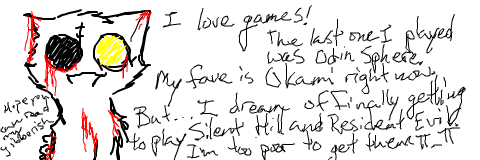 I love games!
The last one I played
was Odin Sphere.
My fave is Okami right now,
But... I dream of finally getting
to play Silent Hill and Resident Evil,
I'm too poor to get them TT_TT
can read
my
jibberish